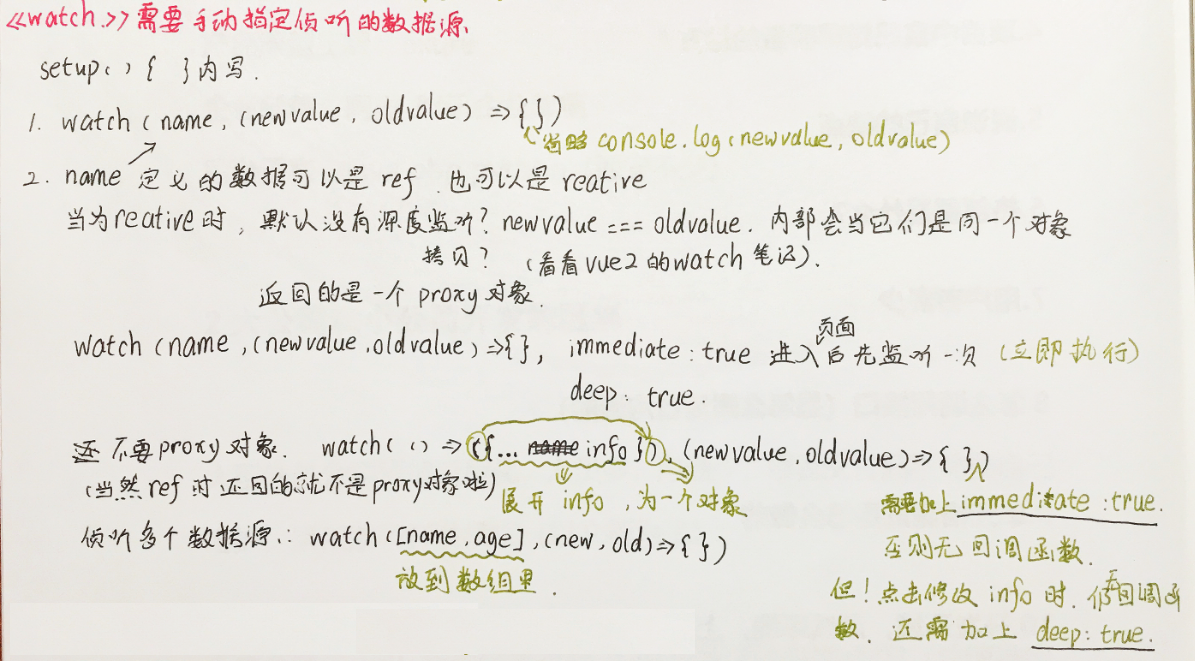 《watch》需要手动指定侦听的数据源.
setup() { }内写.
1. watch(name, (newvalue, oldvalue) => {})
省略 console.log(newvalue, oldvalue)
2. name 定义的数据可以是 ref 也可以是 reative
当为reative时, 默认没有深度监听? newvalue === oldvalue. 内部会当它们是同一个对象
拷贝? (看看vue2的watch笔记).
返回的是一个 proxy 对象.
watch (name, (newvalue, oldvalue) => {}, immediate: true 进入页面后先监听一次 (立即执行)
deep: true.
还不要proxy对象. watch( () => ({... info}), (newvalue, oldvalue) => { })
(当然ref时还回的就不是proxy对象啦)
展开 info, 为一个对象
需要加上 immediate: true.
侦听多个数据源: watch([name, age], (new, old) => { })
否则无回调函数.
放到数组里.
但! 点击修改 info 时. 仍无回调函
数. 还需加上 deep: true.